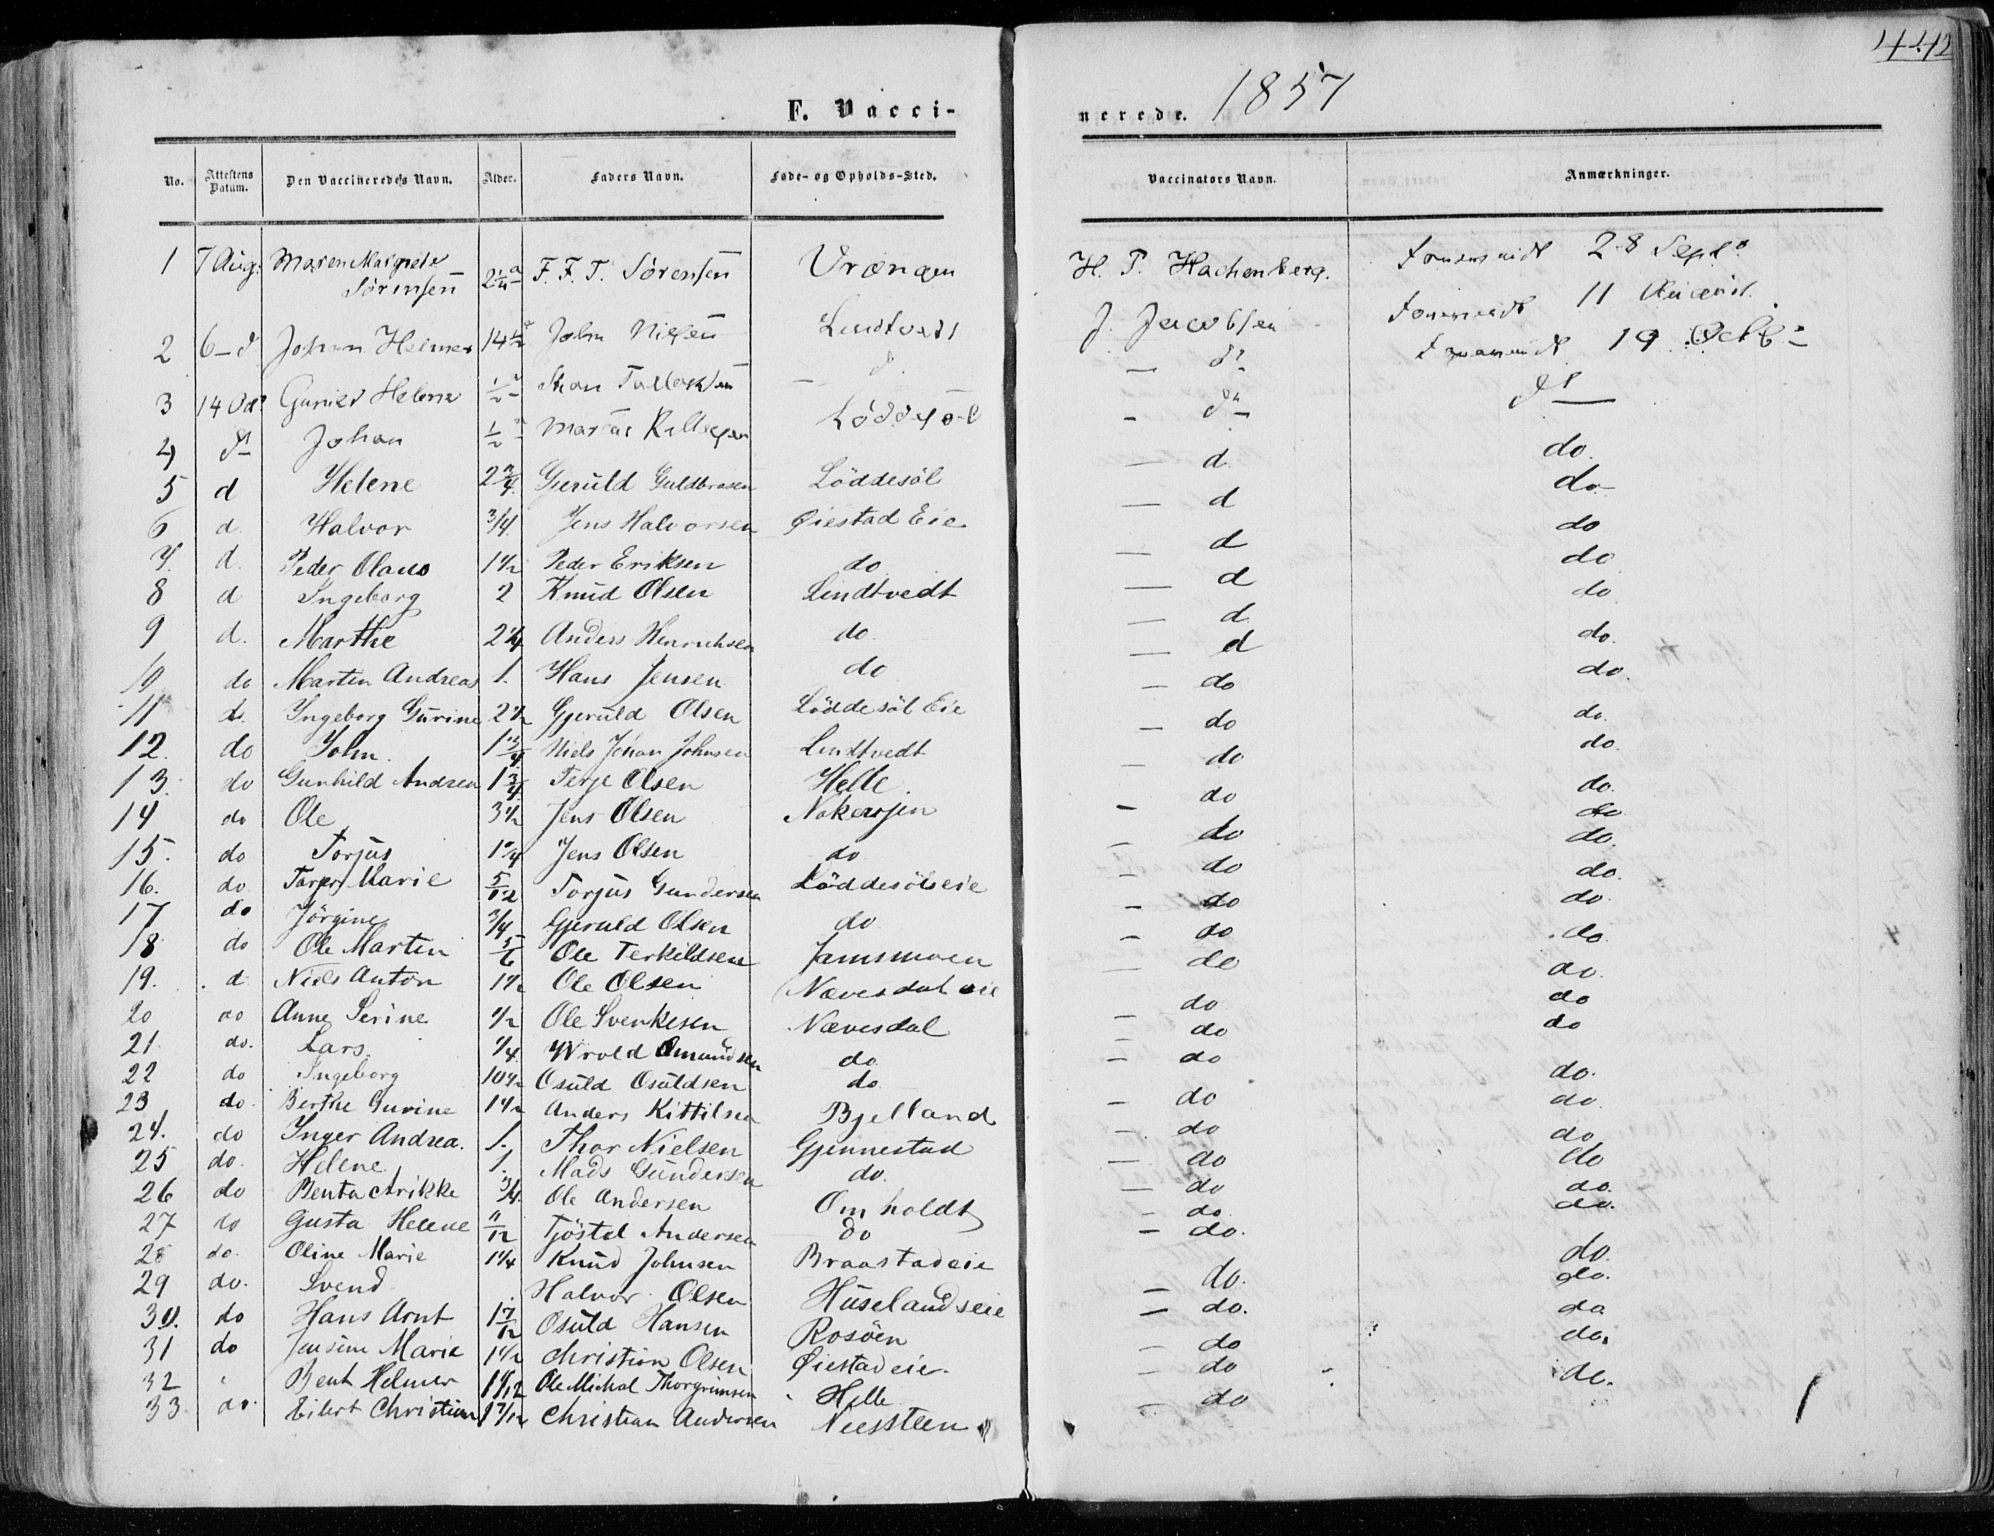 442
F. Vacci-
nerede. 1857
No. Attestens Datum. Den Vaccineredes Navn. Alder. Faders Navn. Føde- og Opholds-Sted. Vaccinators Navn. Anmærkninger.
1 7 Aug. Maren Margrete Sörensen 2 1/4 F. F. T. Sörensen Vrængen H. P. Hachenberg. 28 Sept.
2 6 - d Johan Helmer 14 1/2 John Nielsen Lindtvedt J. Jacobsen 11
3 14 Oct Gunild Helene 1/2 Tallaksen d - d 19 Octb
4 d Johan 1/2 Marcus Löddesöl - d d
5 d Helene 2 3/4 Gjeruld Guldbrasen Löddesöl - d do.
6 d. Halvor 3/4 Jens Halvorsen Øiestad Eie - d do
7. d. Peder Olaus 1 1/2 Peder Eriksen do - d do
8 d Ingeborg 2 Knud Olsen Lindtvedt - d do
9 d. Marthe 2 1/4 Anders Henrichsen do. - d. do
10 do Martin Andreas 1. Hans Jensen do - d do.
11 d. Ingeborg Gurine 2 1/2 Gjeruld Olsen Löddesöl Eie - do do.
12. do John. 1 3/4 Niels Johan Johnsen Lindtvedt - do do.
13. do Gunhild Andrea 1 3/4 Terje Olsen Helle. - do do.
14 do Ole 3 1/2 Jens Olsen - do do.
15. do Torjus 1 1/4 Jens Olsen do - do do
16. do Marie 5/12 Torjus Gundersen Löddesölseie - do do.
17 do Jörgine 3/4 Gjeruld Olsen do - do do.
18 do Ole Martin 5/6 Ole Terkildsen Jamsmoen - do do.
19. d Niels Anton 1 1/2 Ole Olsen Nævesdal eie - do do
20 do Anne Serine 1/2 Ole Svenkesen Nævesdal - do do.
21. do. Lars. 1/4 Wrold Omundsen do - do do
22 do Ingeborg 10 1/2 Osuld Osuldsen do - do do
23 do. Berthe Gurine 1 1/2 Anders Kittilsen Bjelland - do do.
24. do Inger Andrea. 1. Thor Nielsen Gjennestad - do do.
25 do. Helene 1. Mads Gundersen do. - do do
26 do Benta Arikke 3/4 Ole Andersen Omholdt - do do
27 do Gusta Helene 11/12 Tjöstel Andersen do - do do.
28 do. Oline Marie 1 1/4 Knud Johnsen Braastadeie - do. do.
29 do. Svend Halvor Olsen Huselandseie - do. do.
30. do Hans Arnt 1 7/12 Osuld Hansen Rosöen - do. do.
31 do Jensine Marie 1 1/2 Christian Olsen Øiestadeie. - do do
32 Bent Helmer Ole Michal Thorgrimsen Helle - do do.
33 do. Eilert Christian 1 7/12 Christian Andersen - do do.